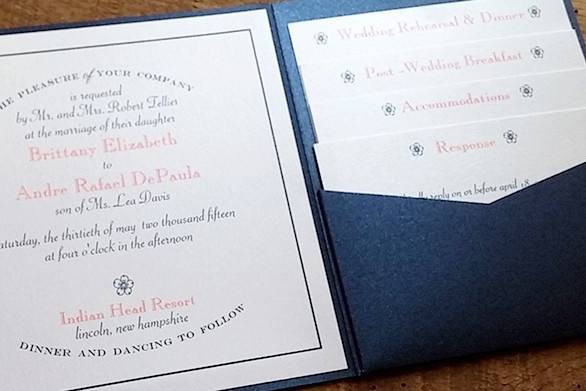 PLEASURE of YOUR COMPANY
is requested
by Mr. and Mrs. Robert Tellier
at the marriage of their daughter
Brittany Elizabeth
to
Andre Rafael DePaula
son of Ms. Lea Davis
the thirtieth of may two thousand fifteen
at four o'clock in the afternoon
Indian Head Resort
lincoln, new hampshire
DINNER AND DANCING TO FOLLOW
Wedding Rehearsal & Dinner
Post -Wedding Breakfast
Accommodations
Response
reply on or before april 18